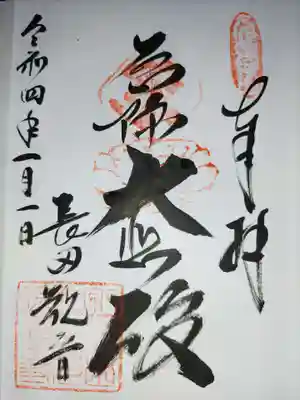 奉拝
大悲殿
長田観音
令和四年一月一日